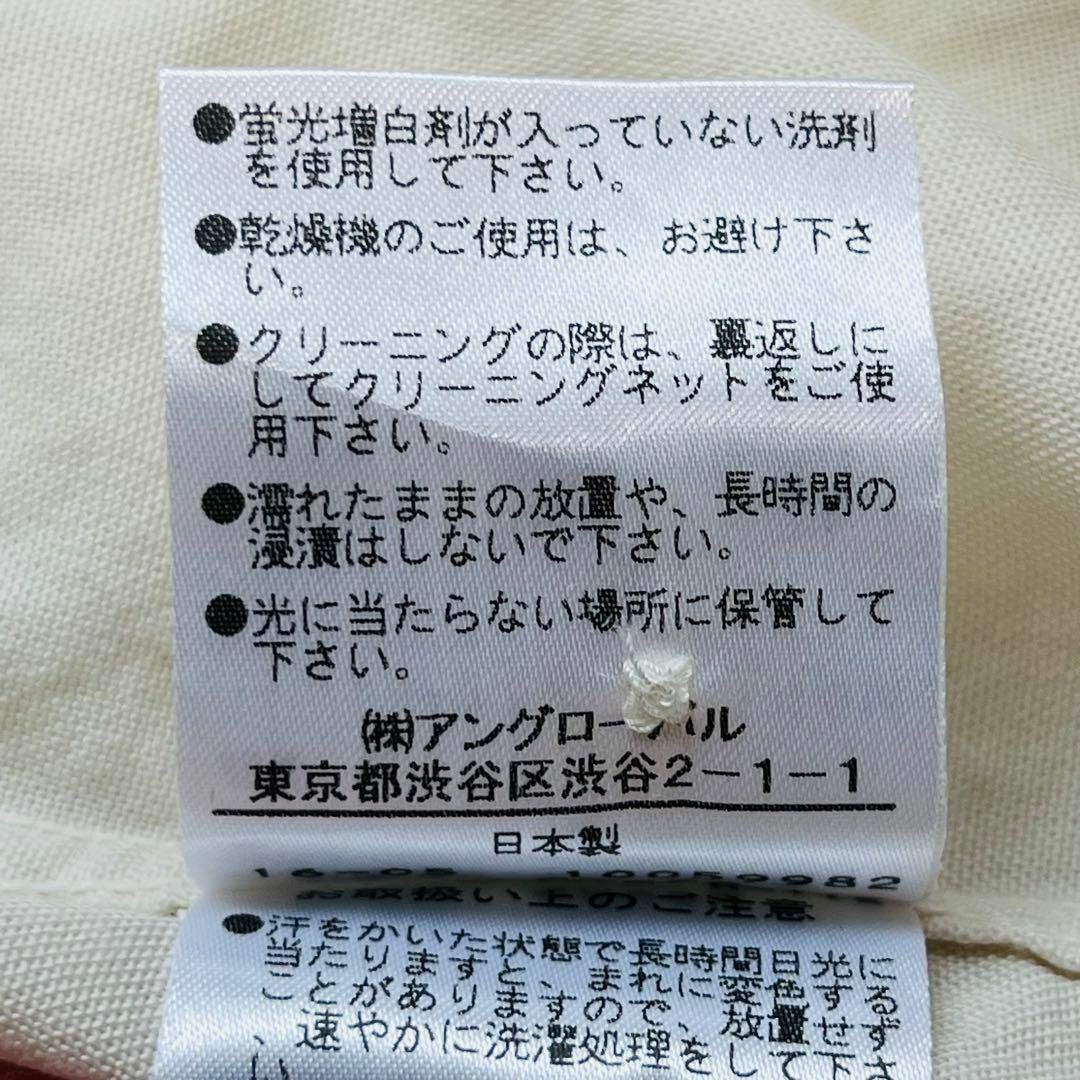 ●蛍光増白剤が入っていない洗剤
を使用して下さい。
●乾燥機のご使用は、お避け下さ
い。
●クリーニングの際は、裏返しに
してクリーニングネットをご使
用下さい。
●濡れたままの放置や、長時間の
浸漬はしないで下さい。
●光に当たらない場所に保管して
下さい。
(株)アングローバル
東京都渋谷区渋谷2-1-1
日本製
16-05 10059982
お取扱い上のご注意
●汗をかいた状態で長時間日光に
当たりますと、まれに変色する
ことがありますので、放置せず
、速やかに洗濯処理をして下さ
い